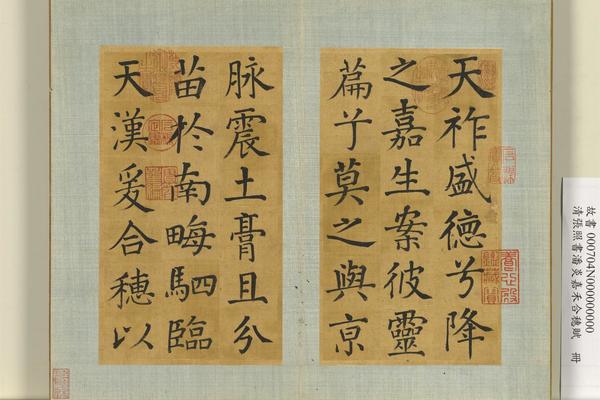 天祚盛德兮降
之嘉生案彼靈
篇兮莫之與京
脉震土膏且分
苗於南畮駟臨
天漢爰合穗以
故書 000704N000000000
清張照書潘炎嘉禾合穗賦 冊